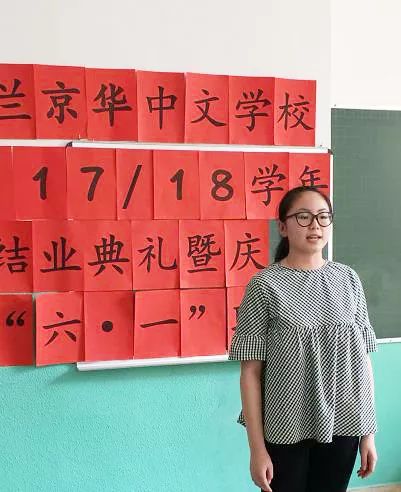 兰京华中文学校
17/18学年
结业典礼暨庆
“六·一”